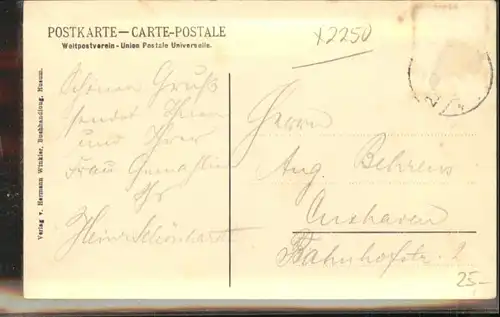 POSTKARTE — CARTE-POSTALE
Weltpostverein - Union Postale Universelle.
x2250
Verlag v. Hermann Winkler, Buchhandlung, Husum.
Schönen Gruß
sendet Ihnen
und Ihrer
Frau Gemahlin
Ihr
Heinr. Schönhardt
Herrn
Aug. Behrens
Cuxhaven
Bahnhofstr. 2
25,-